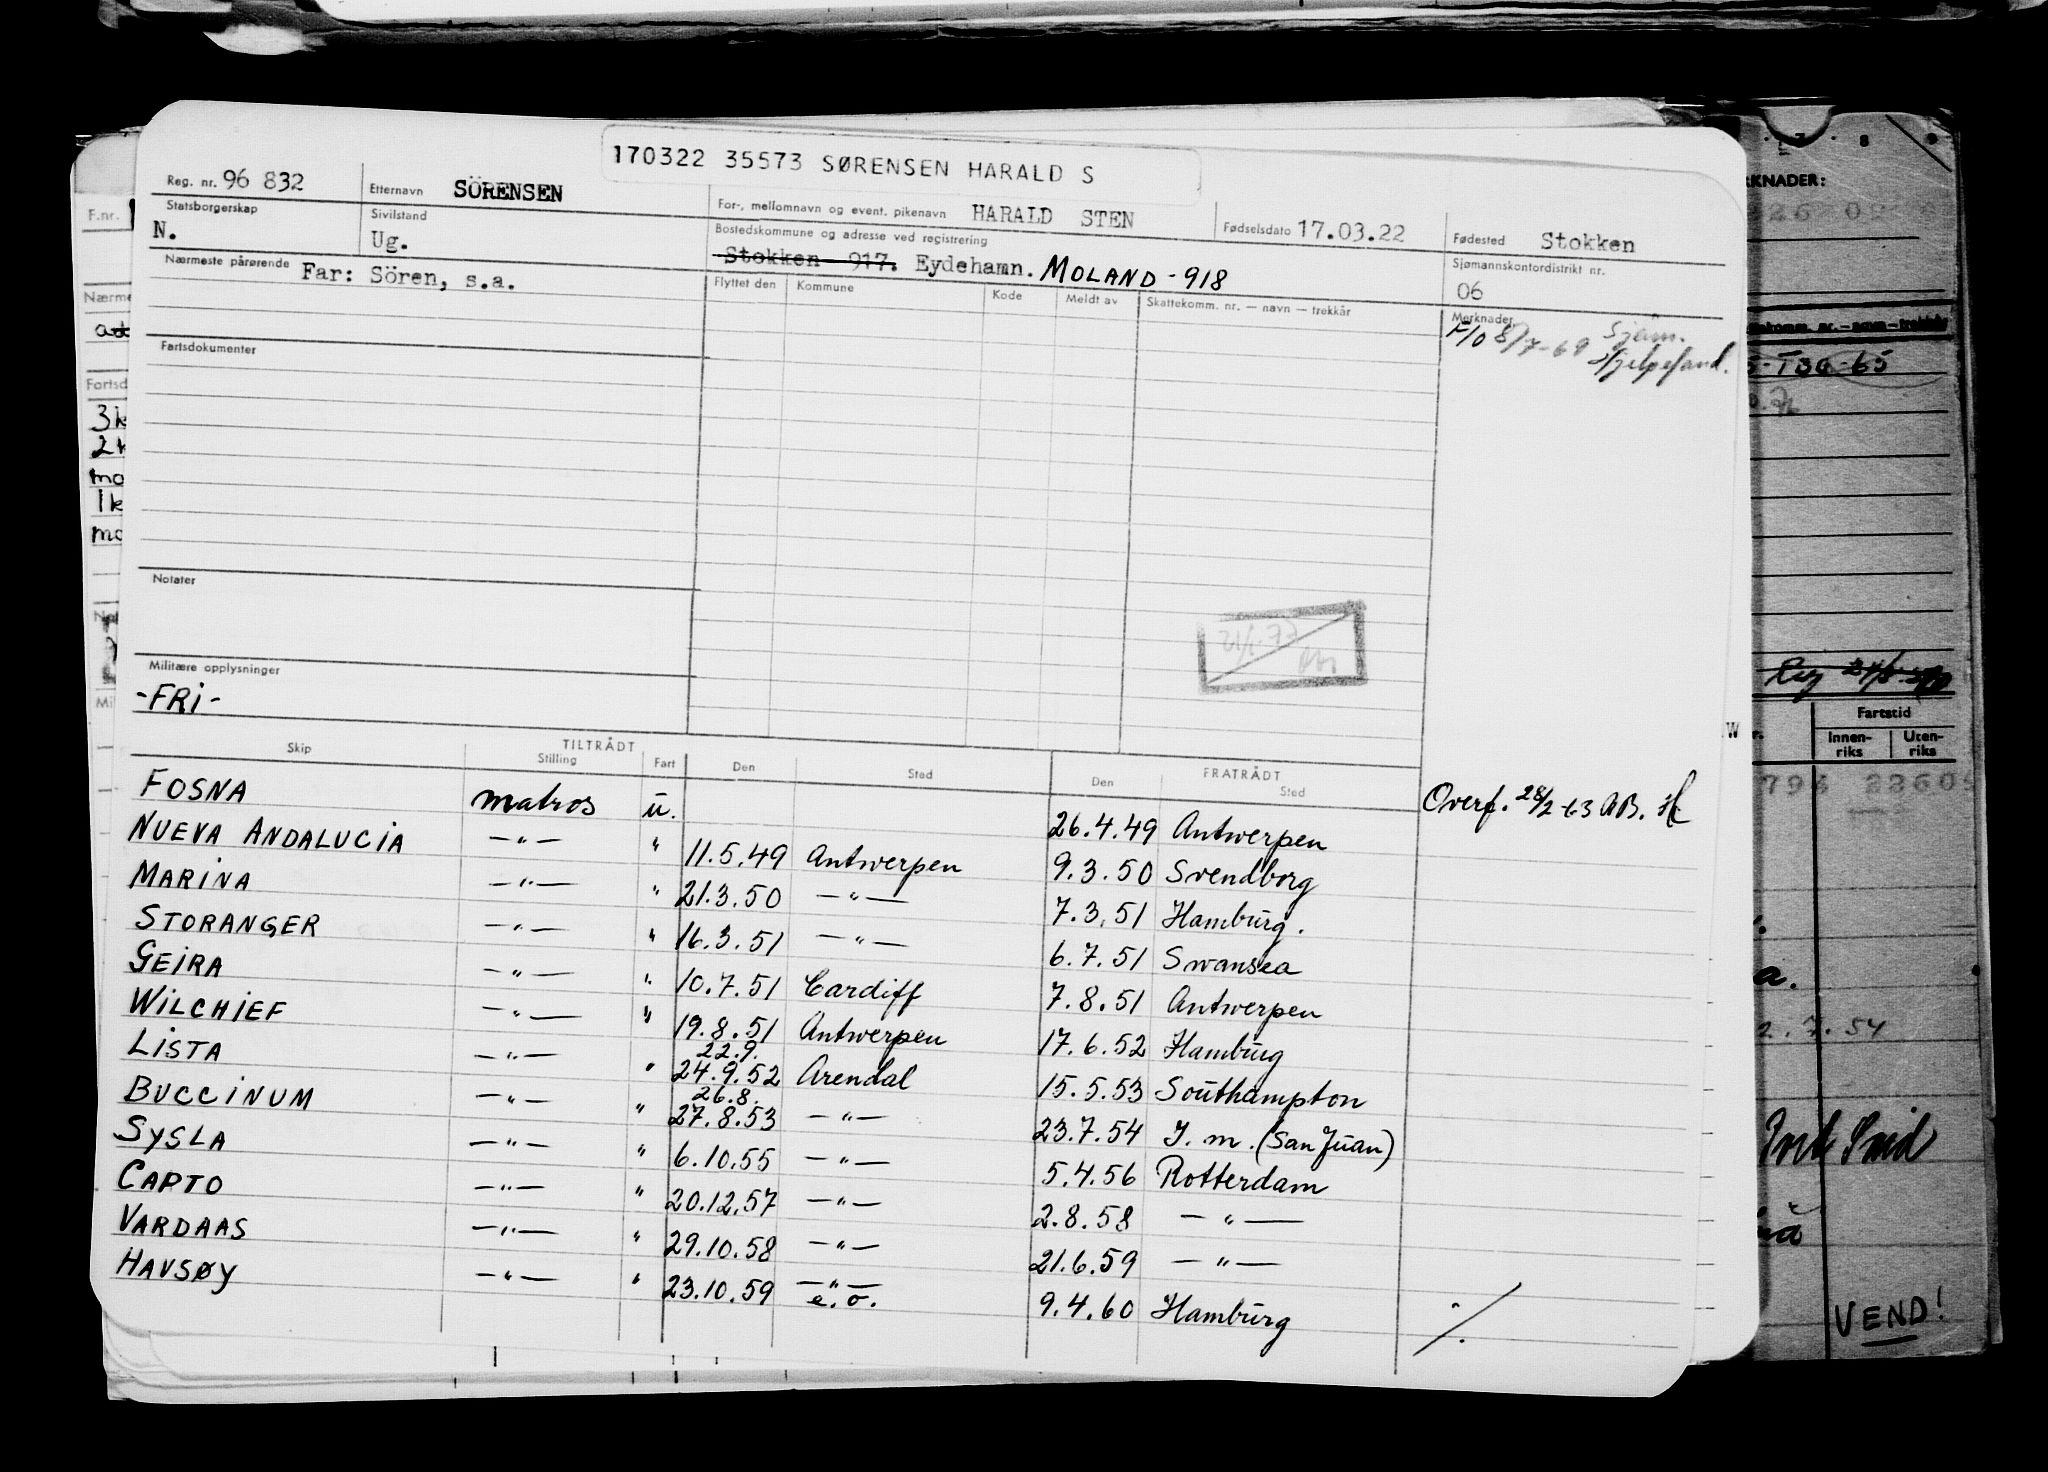 170322 35573 SØRENSEN HARALD S
Reg. nr. 96 832 Etternavn SÖRENSEN For-, mellomnavn og event. pikenavn HARALD STEN Fødselsdato 17.03.22 Fødested Stokken
Statsborgerskap N. Sivilstand Ug. Bostedskommune og adresse ved registrering Stokken 917. Eydehamn. MOLAND - 918 Sjømannskontordistrikt nr. 06
Nærmeste pårørende Far: Sören, s.a.
Flyttet den Kommune Kode Meldt av Skattekomm. nr. — navn — trekkår Merknader
F/O 8/7-69 Sjøm. Hjelpefand.
Fartsdokumenter
Notater
Militære opplysninger
-FRI-
TILTRÅDT FRATRÅDT
Skip Stilling Fart Den Sted Den Sted
FOSNA matros u. 26.4.49 Antwerpen Overf. 28/2-63 AB.
NUEVA ANDALUCIA —"— " 11.5.49 Antwerpen 9.3.50 Svendborg
MARINA —"— " 21.3.50 —"— 7.3.51 Hamburg.
STORANGER —"— " 16.3.51 —"— 6.7.51 Swansea
GEIRA —"— " 10.7.51 Cardiff 7.8.51 Antwerpen
WILCHIEF —"— " 19.8.51 Antwerpen 17.6.52 Hamburg
22.9.
LISTA —"— " 24.9.52 Arendal 15.5.53 Southampton
26.8.
BUCCINUM —"— " 27.8.53 —"— 23.7.54 I. m. (San Juan)
SYSLA —"— " 6.10.55 —"— 5.4.56 Rotterdam
CAPTO —"— " 20.12.57 —"— 2.8.58 —"—
VARDAAS —"— " 29.10.58 —"— 21.6.59 —"—
HAVSØY —"— " 23.10.59 —"— e.o. 9.4.60 Hamburg ./.
F.nr.
3k
2k
mo
1k
mo
KNADER:
5-TBG-65
Fartstid
Innen-riks Uten-riks
a.
2.7.54
VEND!